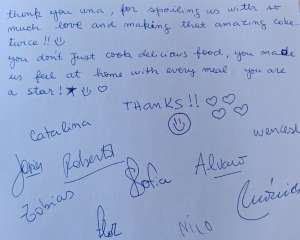 thank you una, for spoiling us with so
much love and making that amazing cake
twice!!
you don't just cook delicious food, you made
us feel at home with every meal you are
a star!
THANKS!!
Catalina
wencesl
Javier Roberto Sofia Alvaro
Tobias
Flor
NICO